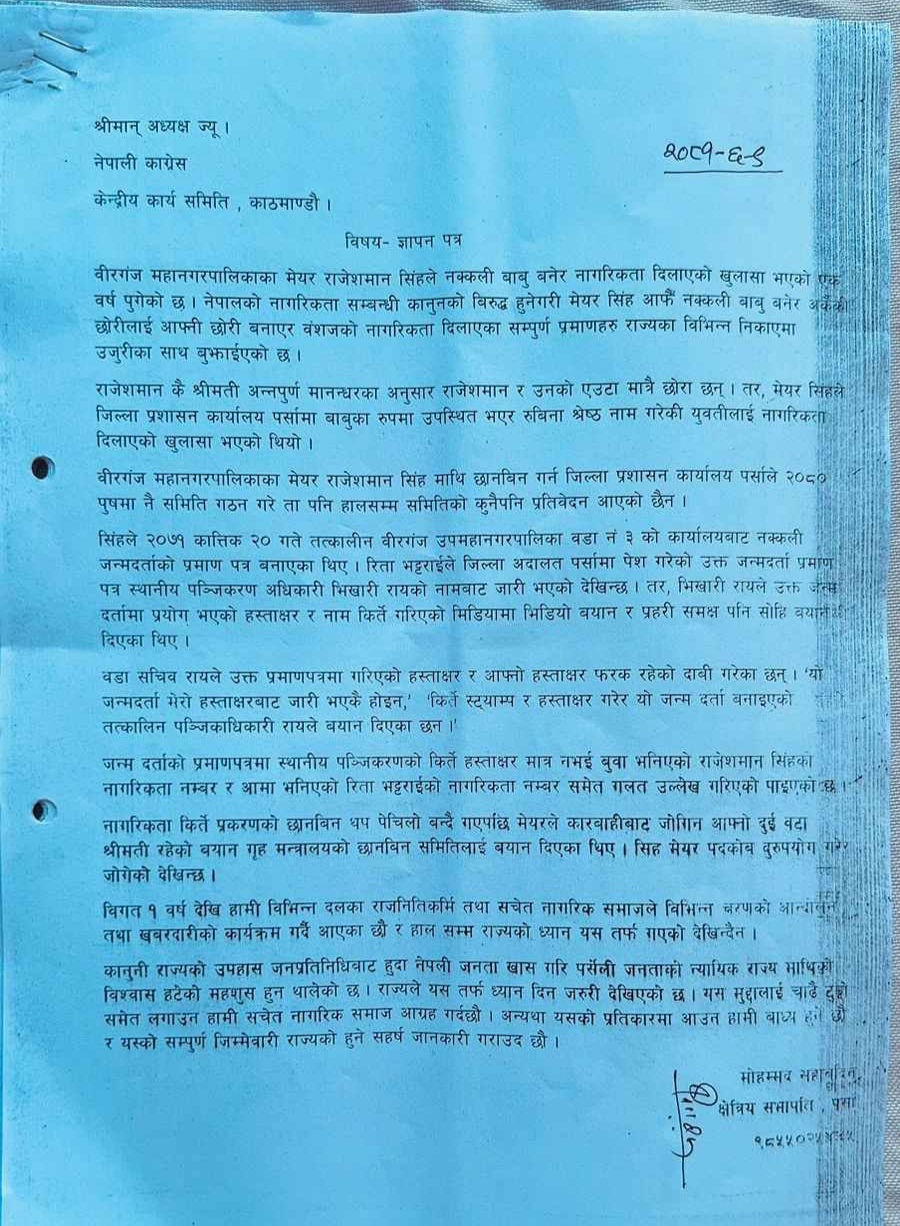 श्रीमान् अध्यक्ष ज्यू ।
२०८१-६-९
नेपाली काग्रेस
केन्द्रीय कार्य समिति , काठमाण्डौ ।
विषय- ज्ञापन पत्र
वीरगंज महानगरपालिकाका मेयर राजेशमान सिंहले नक्कली बाबु बनेर नागरिकता दिलाएको खुलासा भएको एक
वर्ष पुगेको छ । नेपालको नागरिकता सम्बन्धी कानुनको विरुद्ध हुनेगरी मेयर सिंह आफैं नक्कली बाबु बनेर अर्कैकी
छोरीलाई आफ्नी छोरी बनाएर वंशजको नागरिकता दिलाएका सम्पुर्ण प्रमाणहरु राज्यका विभिन्न निकाएमा
उजुरीका साथ बुझाईएको छ ।
राजेशमान कै श्रीमती अन्नपुर्ण मानन्धरका अनुसार राजेशमान र उनको एउटा मात्रै छोरा छन् । तर, मेयर सिंहले
जिल्ला प्रशासन कार्यालय पर्सामा बाबुका रुपमा उपस्थित भएर रुविना श्रेष्ठ नाम गरेकी युवतीलाई नागरिकता
दिलाएको खुलासा भएको थियो ।
वीरगंज महानगरपालिकाका मेयर राजेशमान सिंह माथि छानबिन गर्न जिल्ला प्रशासन कार्यालय पर्साले २०८०
पुषमा नै समिति गठन गरे ता पनि हालसम्म समितिको कुनैपनि प्रतिवेदन आएको छैन ।
सिंहले २०७१ कात्तिक २० गते तत्कालीन वीरगंज उपमहानगरपालिका वडा नं ३ को कार्यालयबाट नक्कली
जन्मदर्ताको प्रमाण पत्र बनाएका थिए । रिता भट्टराईले जिल्ला अदालत पर्सामा पेश गरेको उक्त जन्मदर्ता प्रमाण
पत्र स्थानीय पञ्जिकरण अधिकारी भिखारी रायको नामबाट जारी भएको देखिन्छ । तर, भिखारी रायले उक्त जन्म
दर्तामा प्रयोग भएको हस्ताक्षर र नाम किर्ते गरिएको मिडियामा भिडियो बयान र प्रहरी समक्ष पनि सोहि बयान
दिएका थिए ।
वडा सचिव रायले उक्त प्रमाणपत्रमा गरिएको हस्ताक्षर र आफ्नो हस्ताक्षर फरक रहेको दाबी गरेका छन् । 'यो
जन्मदर्ता मेरो हस्ताक्षरबाट जारी भएकै होइन,' 'किर्ते स्ट्याम्प र हस्ताक्षर गरेर यो जन्म दर्ता बनाइएको
तत्कालिन पञ्जिकाधिकारी रायले बयान दिएका छन ।'
जन्म दर्ताको प्रमाणपत्रमा स्थानीय पञ्जिकरणको किर्ते हस्ताक्षर मात्र नभई बुवा भनिएको राजेशमान सिंहका
नागरिकता नम्बर र आमा भनिएको रिता भट्टराईको नागरिकता नम्बर समेत गलत उल्लेख गरिएको पाइएको छ ।
नागरिकता किर्ते प्रकरणको छानबिन थप पेचिलो बन्दै गएपछि मेयरले कारबाहीबाट जोगिन आफ्नो दुई वटा
श्रीमती रहेको बयान गृह मन्त्रालयको छानबिन समितिलाई बयान दिएका थिए । सिंह मेयर पदकोब दुरुपयोग गरेर
जोगेको देखिन्छ ।
विगत १ वर्ष देखि हामी विभिन्न दलका राजनितिकर्मि तथा सचेत नागरिक समाजले विभिन्न चरणको आन्दोलन
तथा खबरदारीको कार्यक्रम गर्दै आएका छौ र हाल सम्म राज्यको ध्यान यस तर्फ गएको देखिन्दैन ।
कानुनी राज्यको उपहास जनप्रतिनिधिबाट हुदा नेपली जनता खास गरि पर्सेली जनताको न्यायिक राज्य माथिको
विश्वास हटेको महशुस हुन थालेको छ । राज्यले यस तर्फ ध्यान दिन जरुरी देखिएको छ । यस मुद्दालाई चाढै टुङ्गो
समेत लगाउन हामी सचेत नागरिक समाज आग्रह गर्दछौ । अन्यथा यसको प्रतिकारमा आउन हामी बाध्य हुने छौ
र यस्को सम्पुर्ण जिम्मेवारी राज्यको हुने सहर्ष जानकारी गराउद छौ ।
मोहम्मद
क्षेत्रिय सभापति , पर्सा